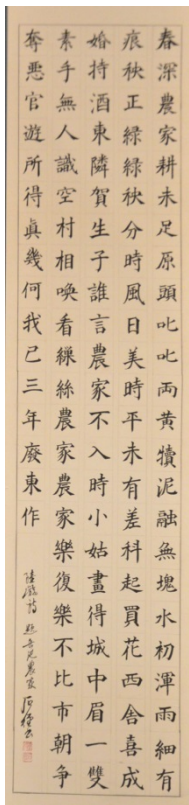 春深農家耕未足原頭叱叱両黄犢泥融無塊水初渾雨細有
痕秧正緑緑秧分時風日美時平未有差科起買花西舎喜成
婚持酒東隣賀生子誰言農家不入時小姑畫得城中眉一雙
素手無人識空村相喚看繰絲農家農家樂復樂不比市朝争
奪悪官遊所得眞幾何我已三年廢東作
陸游詩 農家 書